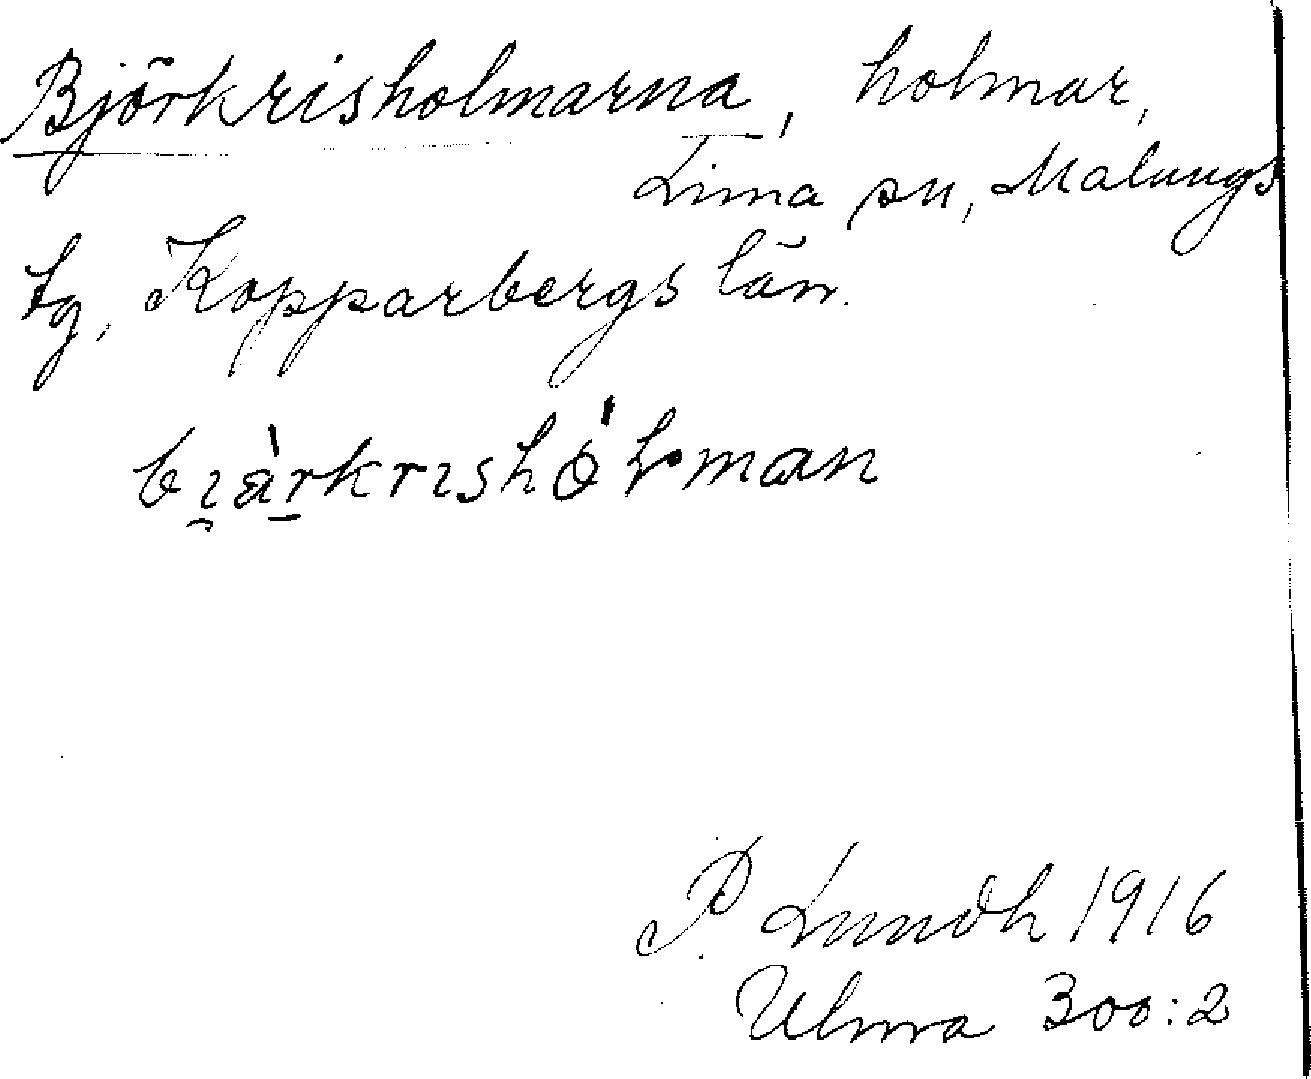 Björkrisholmarna, holmar,
Lima sn, Malungs
tg, Kopparbergs län.
bi̯àr̠krıshólman
P. Lundh 1916
Ulma 300:2